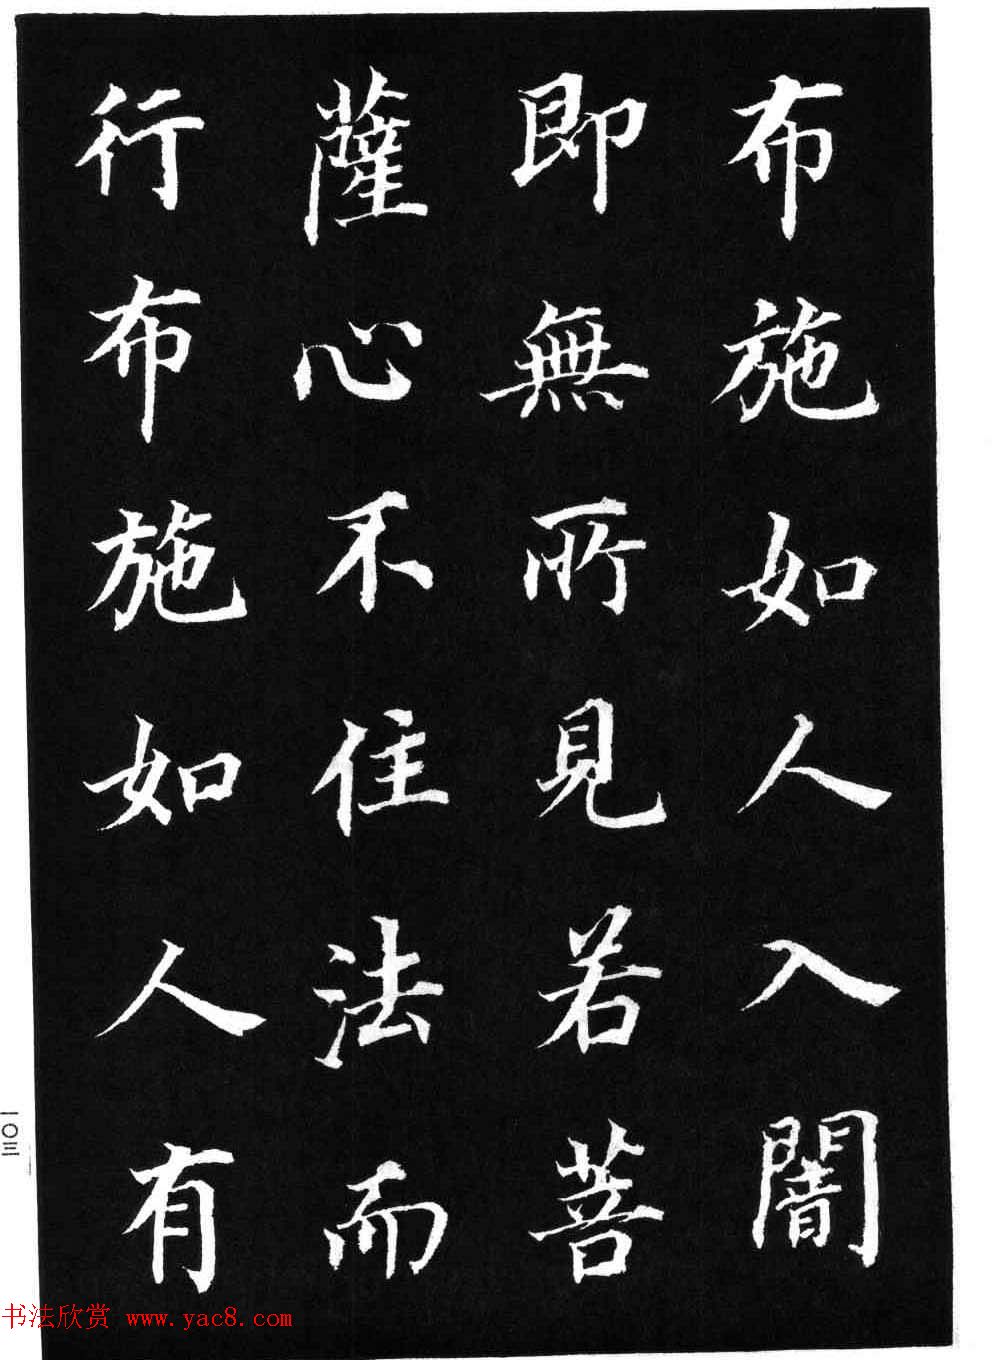 布施如人入闇
即無所見若菩
薩心不住法而
行布施如人有
一〇三
书法欣赏 www.yac8.com